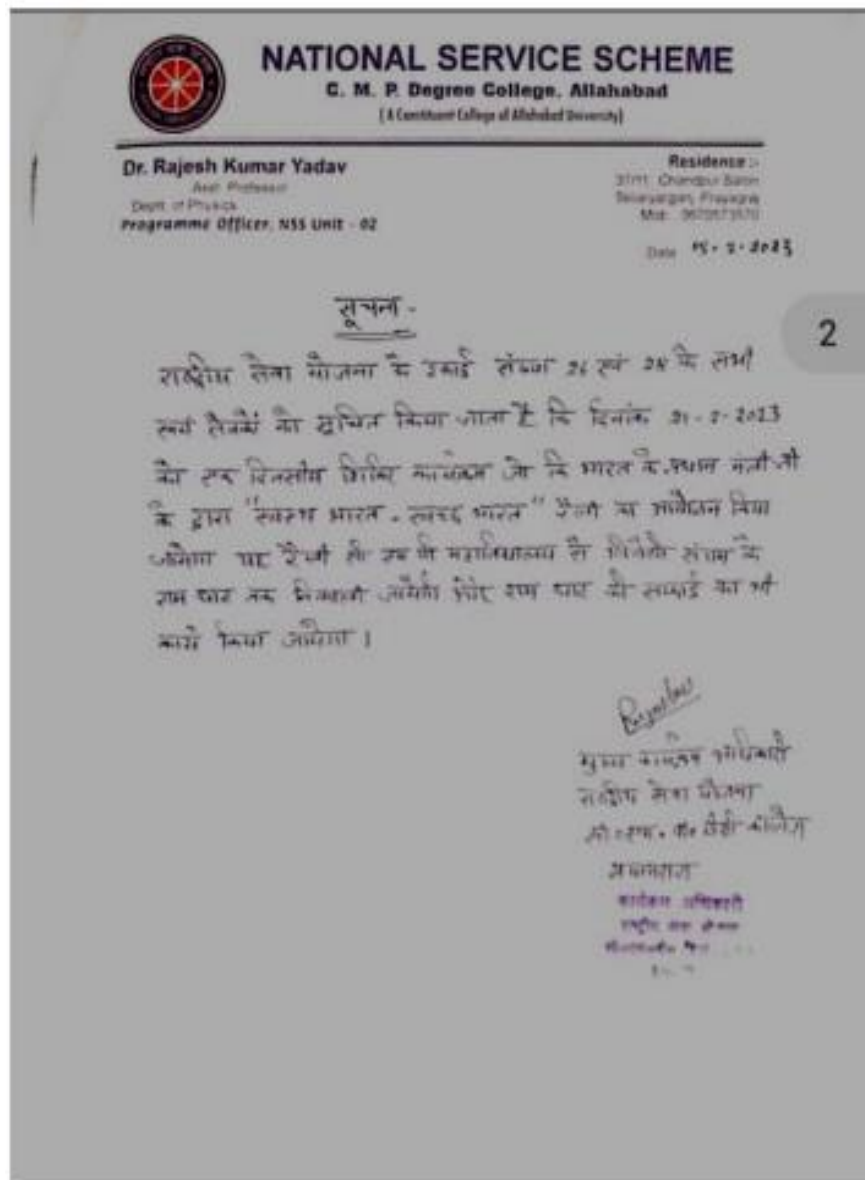 NATIONAL SERVICE SCHEME
C. M. P. Degree College, Allahabad
(A Constituent College of Allahabad University)
Dr. Rajesh Kumar Yadav
Asst. Professor
Deptt. of Physics
Programme Officer, NSS Unit - 02
Residence :-
Mob.
Date
सूचना -
राष्ट्रीय सेवा योजना के इकाई संख्या एवं के सभी
स्वयं सेवकों को सूचित किया जाता है कि दिनांक 21-2-2023
को एक दिवसीय शिविर कार्यक्रम जो कि भारत के प्रधान मंत्री जी
के द्वारा "स्वस्थ भारत - स्वच्छ भारत" रैली का आयोजन किया
जायेगा यह रैली सी एम पी महाविद्यालय से त्रिवेणी संगम के
राम घाट तक निकाली जायेगी और राम घाट की सफाई का भी
कार्य किया जायेगा।
मुख्य कार्यक्रम अधिकारी
राष्ट्रीय सेवा योजना
सी॰ एम॰ पी॰ डिग्री कॉलेज
प्रयागराज
कार्यक्रम अधिकारी
राष्ट्रीय सेवा योजना
2